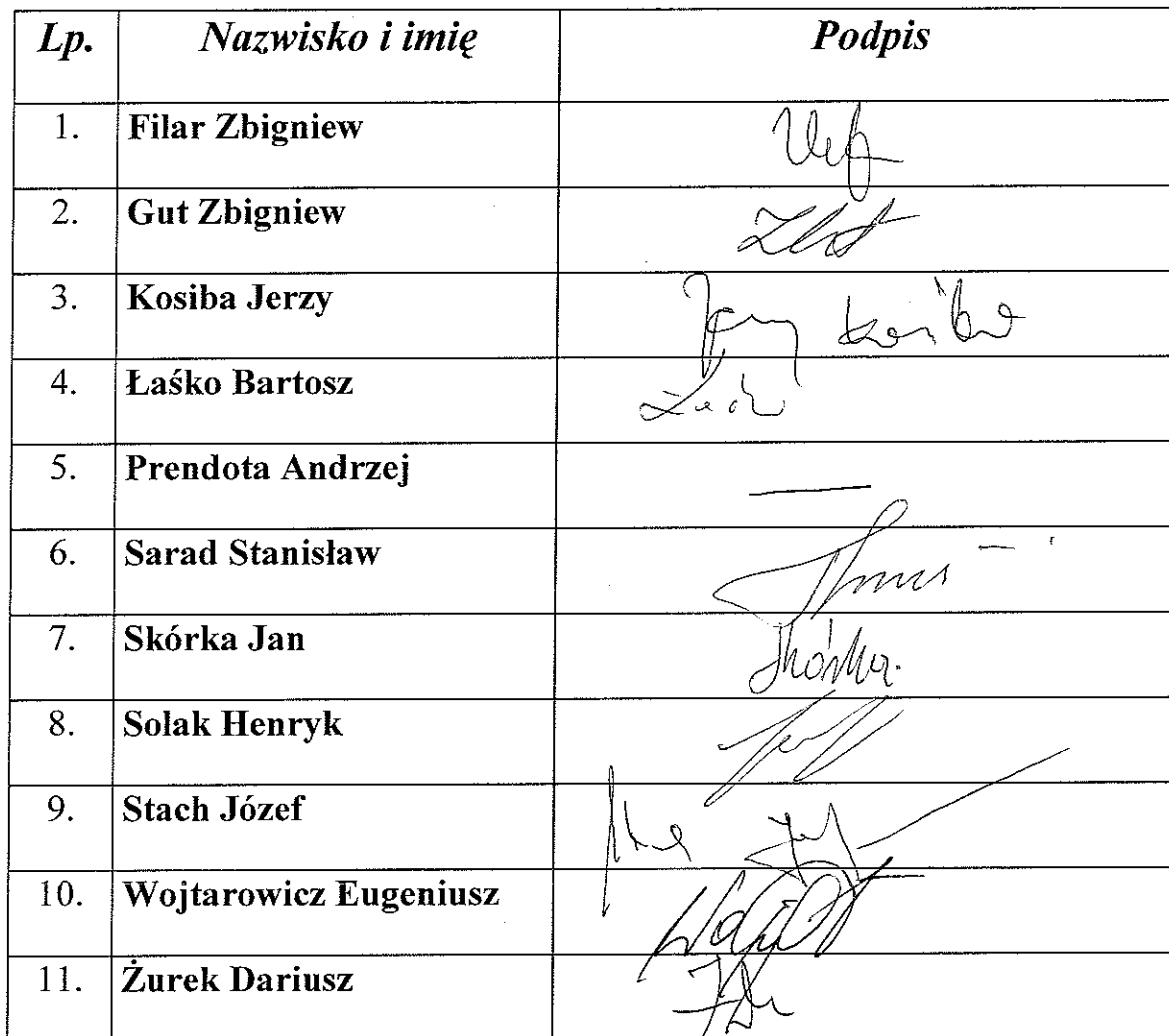 Lp. Nazwisko i imię Podpis
1. Filar Zbigniew
2. Gut Zbigniew
3. Kosiba Jerzy Jerzy Kosiba
4. Łaśko Bartosz
5. Prendota Andrzej —
6. Sarad Stanisław
7. Skórka Jan Skórka
8. Solak Henryk
9. Stach Józef
10. Wojtarowicz Eugeniusz
11. Żurek Dariusz